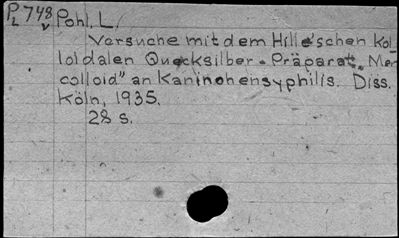 P 748 Pohl, L.
L v
Versuche mit dem Hille'schen Kol-
loidalen Quecksilber-Präparat „Mer
colloid" an Kaninchensyphilis. Diss.
Köln, 1935.
28 s.